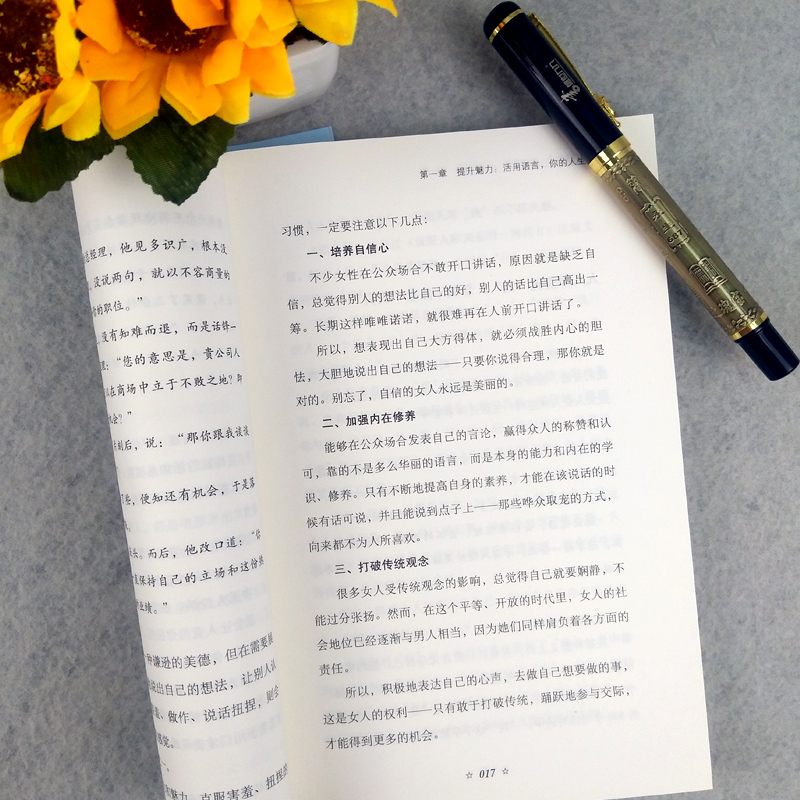 总经理，他见多识广，根本没
没说两句，就以不容商量的
的职位。”
没有知难而退，而是话锋一
理：“您的意思是，贵公司人
在商场中立于不败之地？即
机会？”
刻后，说：“那你跟我谈谈
些，便知还有机会，于是落
头。而后，他改口道：“你
保持自己的立场和这份执
业绩。”
种谦逊的美德，但在需要展
说出自己的想法，让别人认
、做作、说话扭捏，则会
感觉。
魅力，克服害羞、扭捏的
第一章 提升魅力：活用语言，你的人生
习惯，一定要注意以下几点：
一、培养自信心
不少女性在公众场合不敢开口讲话，原因就是缺乏自
信，总觉得别人的想法比自己的好，别人的话比自己高出一
筹。长期这样唯唯诺诺，就很难再在人前开口讲话了。
所以，想表现出自己大方得体，就必须战胜内心的胆
怯，大胆地说出自己的想法——只要你说得合理，那你就是
对的。别忘了，自信的女人永远是美丽的。
二、加强内在修养
能够在公众场合发表自己的言论，赢得众人的称赞和认
可，靠的不是多么华丽的语言，而是本身的能力和内在的学
识、修养。只有不断地提高自身的素养，才能在该说话的时
候有话可说，并且能说到点子上——那些哗众取宠的方式，
向来都不为人所喜欢。
三、打破传统观念
很多女人受传统观念的影响，总觉得自己就要娴静，不
能过分张扬。然而，在这个平等、开放的时代里，女人的社
会地位已经逐渐与男人相当，因为她们同样肩负着各方面的
责任。
所以，积极地表达自己的心声，去做自己想要做的事，
这是女人的权利——只有敢于打破传统，踊跃地参与交际，
才能得到更多的机会。
☆ 017 ☆